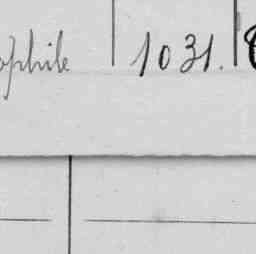 ophile 1031.